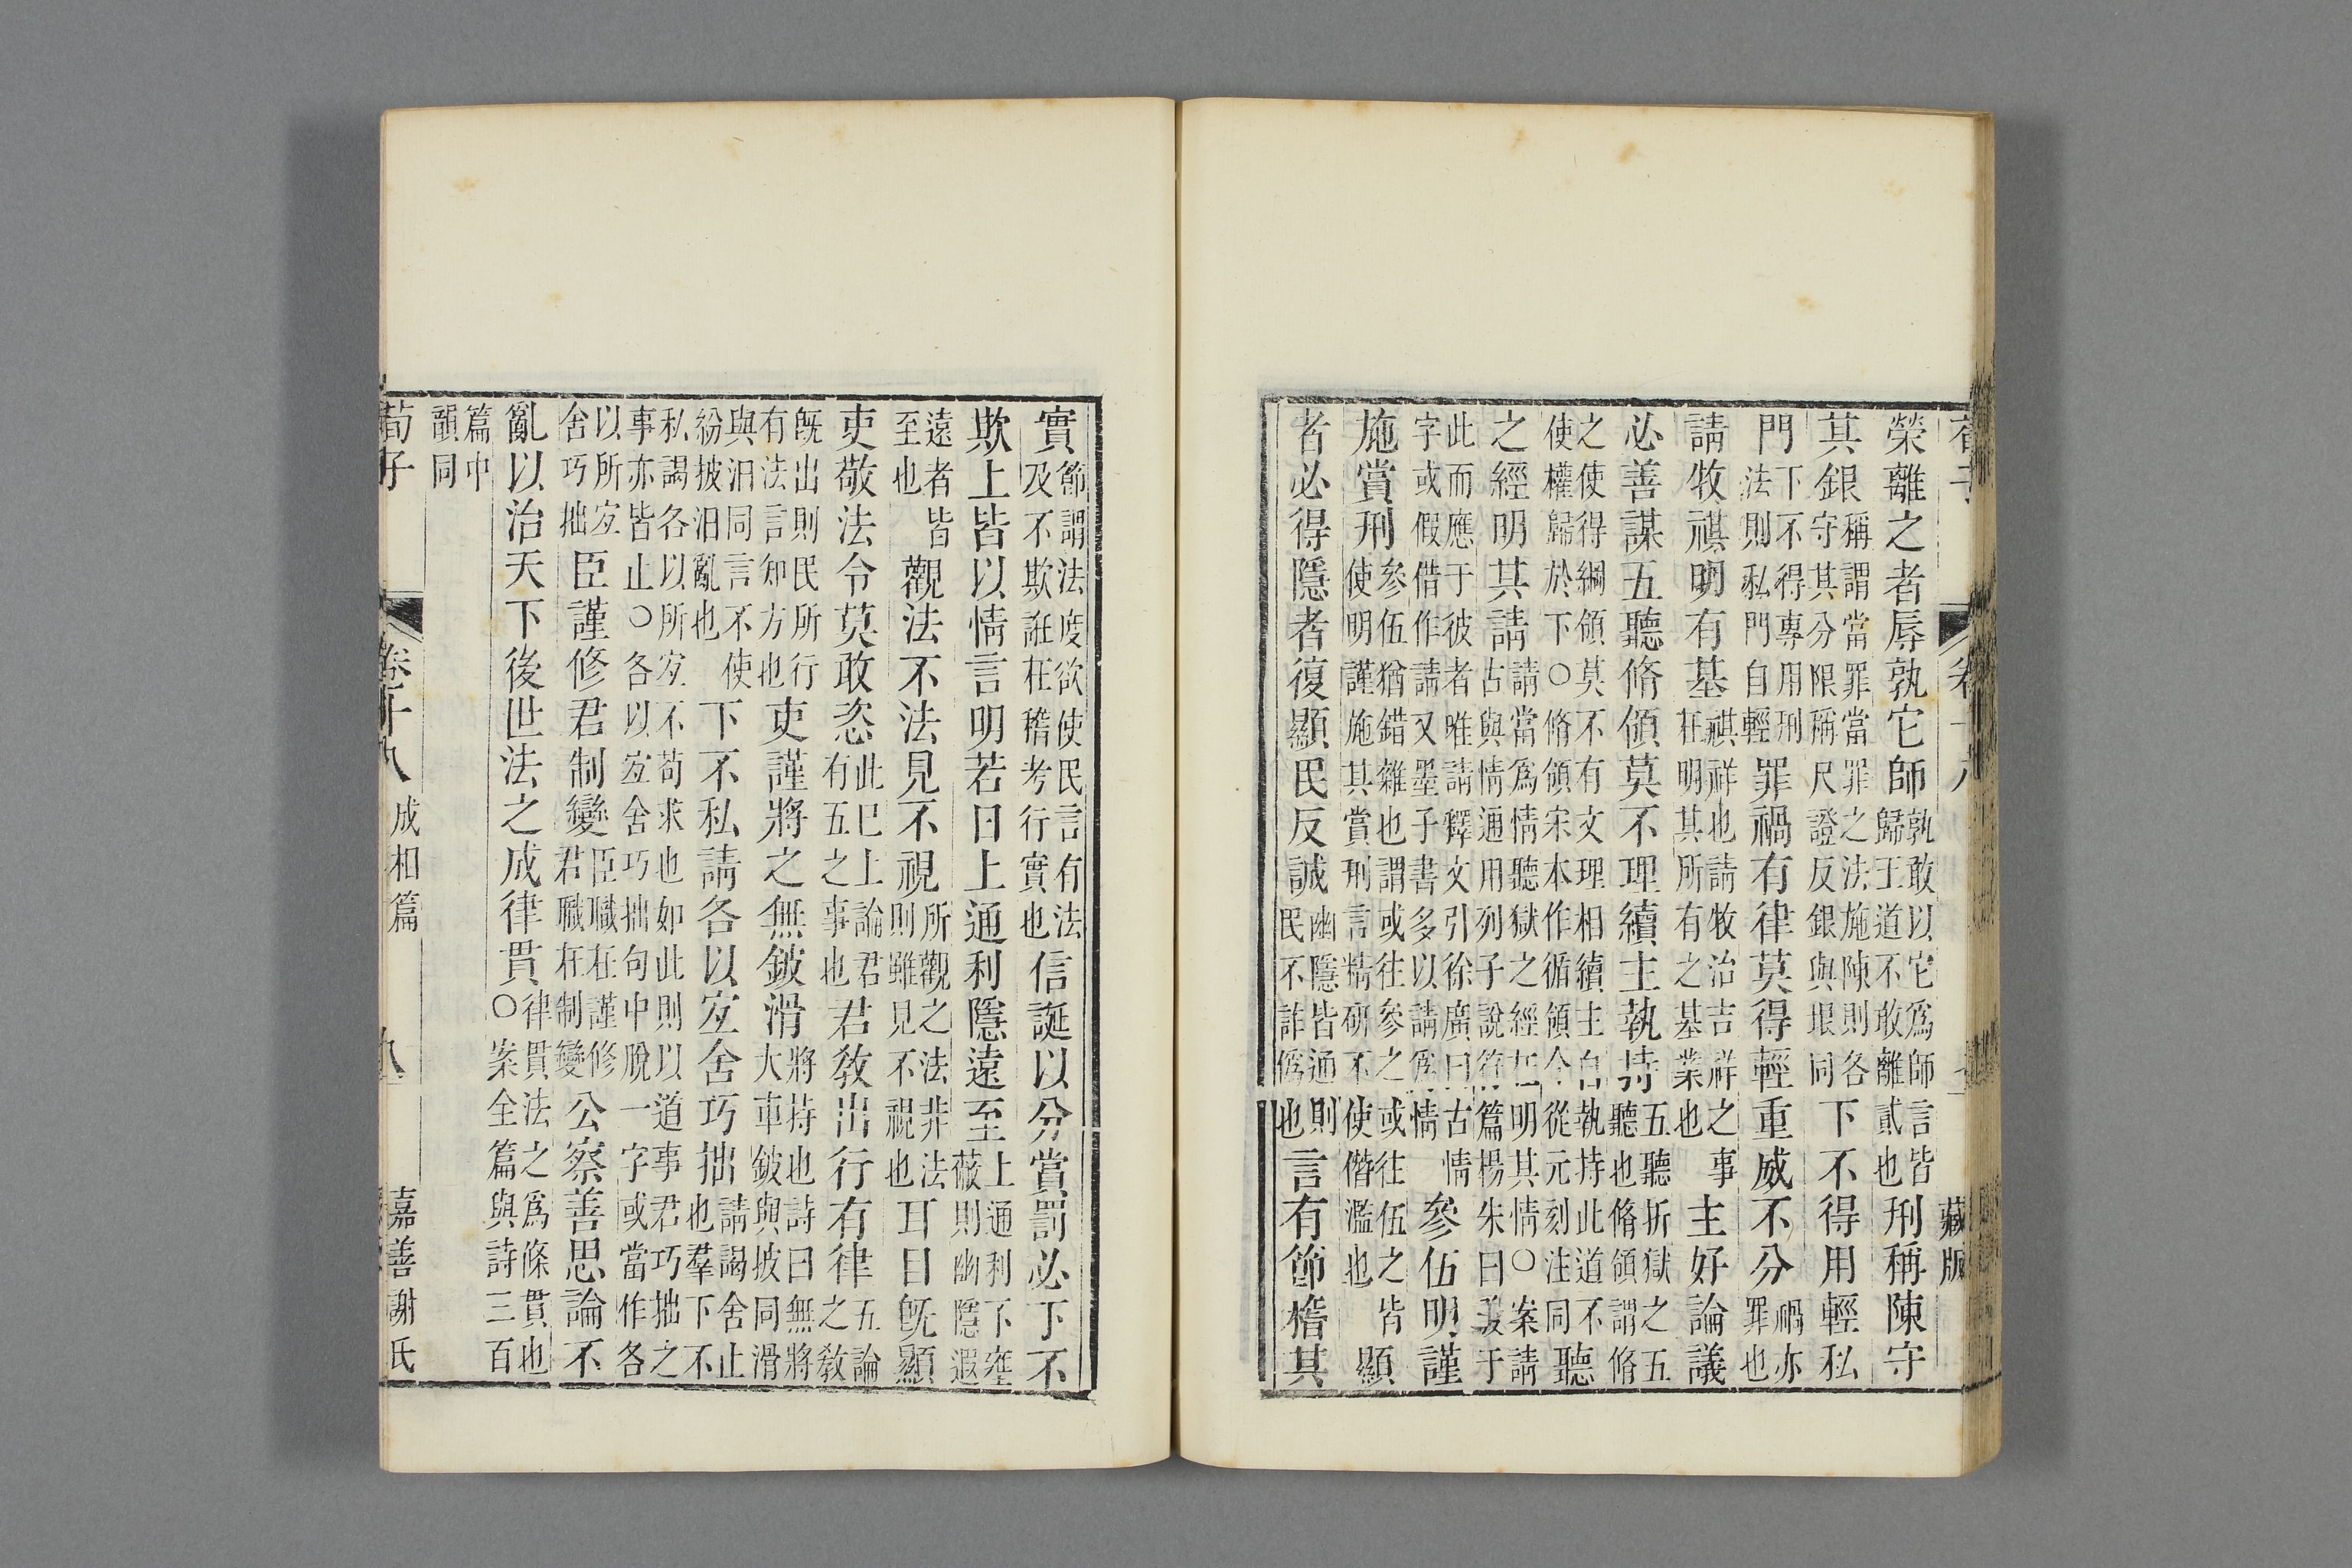 藏版
榮離之者辱孰它師孰敢以它爲師言皆歸王道不敢離貳也刑稱陳守
其銀稱謂當罪當罪之法施陳則各守其分限稱尺證反銀與垠同下不得用輕私
門下不得專用刑法則私門自輕罪禍有律莫得輕重威不分禍亦罪也
請牧祺明有基祺祥也請牧治吉祥之事在明其所有之基業也主好論議
必善謀五聽脩領莫不理續主執持五聽折獄之五聽也脩領謂脩
之使得綱領莫不有文理相續主自執持此道不使權歸於下○脩領宋本作循領今從元刻注同聽
之經明其請請當爲情聽獄之經在明其情○案請古與情通用列子說符篇楊朱曰發于
此而應于彼者唯請釋文引徐廣曰古情字或假借作請又墨子書多以請爲情參伍明謹
施賞刑參伍猶錯雜也謂或往參之或往伍之皆使明謹施其賞刑言精研不使僭濫也顯
者必得隱者復顯民反誠幽隱皆通則民不詐僞也言有節稽其
實節謂法度欲使民言有法及不欺誑在稽考行實也信誕以分賞罰必下不
欺上皆以情言明若日上通利隱遠至上通利下壅蔽則幽隱遐
遠者皆至也觀法不法見不視所觀之法非法則雖見不視也耳目旣顯
吏敬法令莫敢恣此巳上論君有五之事也君教出行有律五論之教
旣出則民所行有法言知方也吏謹將之無鈹滑將持也詩曰無將大車鈹與披同滑
與汩同言不使紛披汩亂也下不私請各以宐舍巧拙請謁舍止也羣下不
私謁各以所宐不苟求也如此則以道事君巧拙之事亦皆止○各以宐舍巧拙句中脫一字或當作各
以所宐舍巧拙臣謹修君制變臣職在謹修君職在制變公察善思論不
亂以治天下後世法之成律貫律貫法之爲條貫也○案全篇與詩三百
篇中韻同
荀子 卷十八 成相篇 八 嘉善謝氏